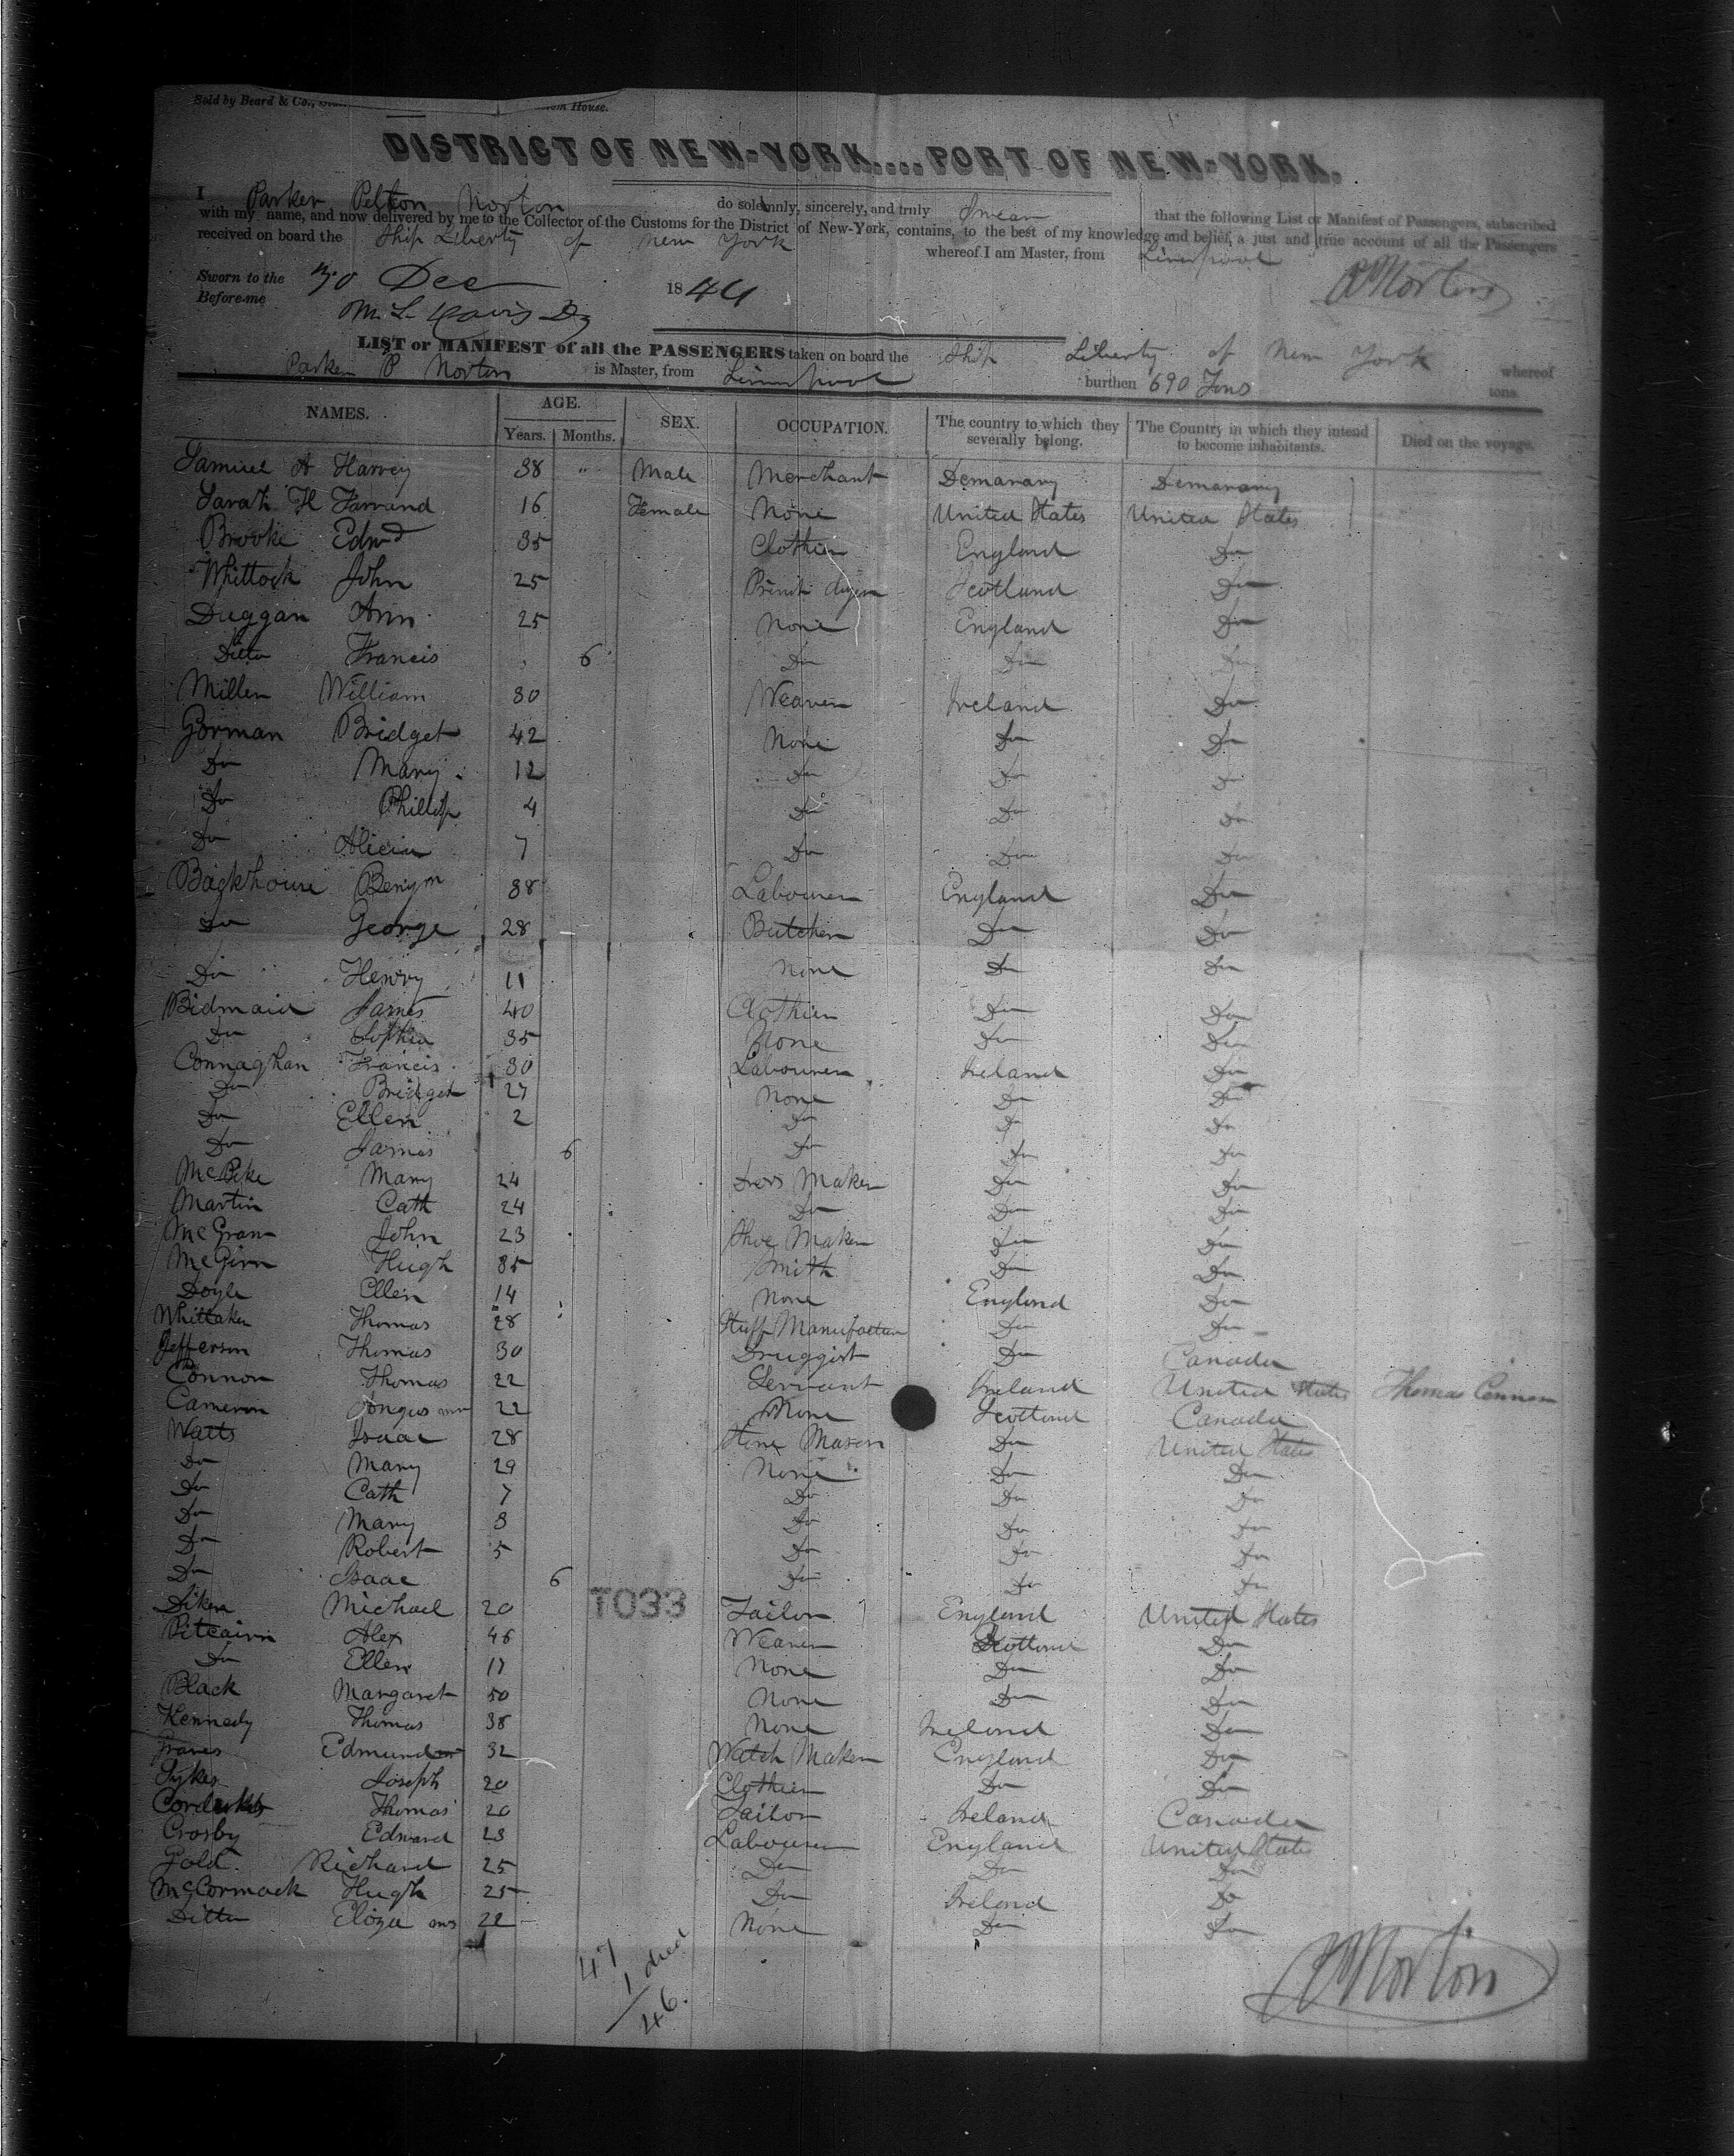 Sold by Beard & Co., House.
DISTRICT OF NEW-YORK....PORT OF NEW-YORK.
I Parker Pelton Morton do solemnly, sincerely, and truly Swear that the following List or Manifest of Passengers, subscribed
with my name, and now delivered by me to the Collector of the Customs for the District of New-York, contains, to the best of my knowledge and belief, a just and true account of all the Passengers
received on board the Ship Liberty of New York whereof I am Master, from Liverpool
Sworn to the 30 Dec 1844 PPMorton
Before me M. L. Davis
LIST or MANIFEST of all the PASSENGERS taken on board the Ship Liberty of New York whereof
Parker P Morton is Master, from Liverpool burthen 690 Tons tons.
NAMES. AGE. SEX. OCCUPATION. The country to which they severally belong. The Country in which they intend to become inhabitants. Died on the voyage.
Years. Months.
Samuel A Harvey 38 " Male Merchant Demarary Demarary
Sarah H Farrand 16 Female None United States United States
Brooke Edwd 35 Clothier England Do
Whittock John 25 Scotland Do
Duggan Ann 25 None England Do
Ditto Francis 6 Do Do Do
Miller William 30 Weaver Ireland Do
Gorman Bridget 42 None Do Do
Do Mary 12 Do Do Do
Do Phillip 4 Do Do Do
Do Alicia 7 Do Do Do
Backhouse Benjm 38 Labourer England Do
Do George 28 Butcher Do Do
Do Henry 11 None Do Do
Bidmaid James 40 Clothier Do Do
Do Sophia 35 None Do Do
Connaghan Francis 30 Labourer Ireland Do
Do Bridget 27 None Do Do
Do Ellen 2 Do Do Do
Do James 6 Do Do Do
McPike Mary 24 Dress Maker Do Do
Martin Cath 24 Do Do Do
McGran John 23 Shoe Maker Do Do
McGinn Hugh 35 Smith Do Do
Doyle Ellen 14 None England Do
Whittaker Thomas 28 Stuff Manufacturer Do Do
Jefferson Thomas 30 Druggist Do Canada
Connon Thomas 22 Servant Ireland United States Thomas Connon
Cameron Angus 22 None Scotland Canada
Watts Isaac 28 Stone Mason Do United States
Do Mary 29 None Do Do
Do Cath 7 Do Do Do
Do Mary 3 Do Do Do
Do Robert 5 Do Do Do
Do Isaac 6 Do Do Do
Michael 20 Tailor England United States
Pitcairn Alex 46 Weaver Scotland Do
Do Ellen 17 None Do Do
Black Margaret 50 None Do Do
Kennedy Thomas 38 None Ireland Do
Graves Edmund 32 Watch Maker England Do
Sykes Joseph 20 Clothier Do Do
Thomas 20 Tailor Ireland Canada
Crosby Edward 23 Labourer England United States
Gold Richard 25 Do Do Do
McCormack Hugh 25 Do Ireland Do
Ditto Eliza mrs 22 None Do Do
T033
47
1 died
46.
PPMorton